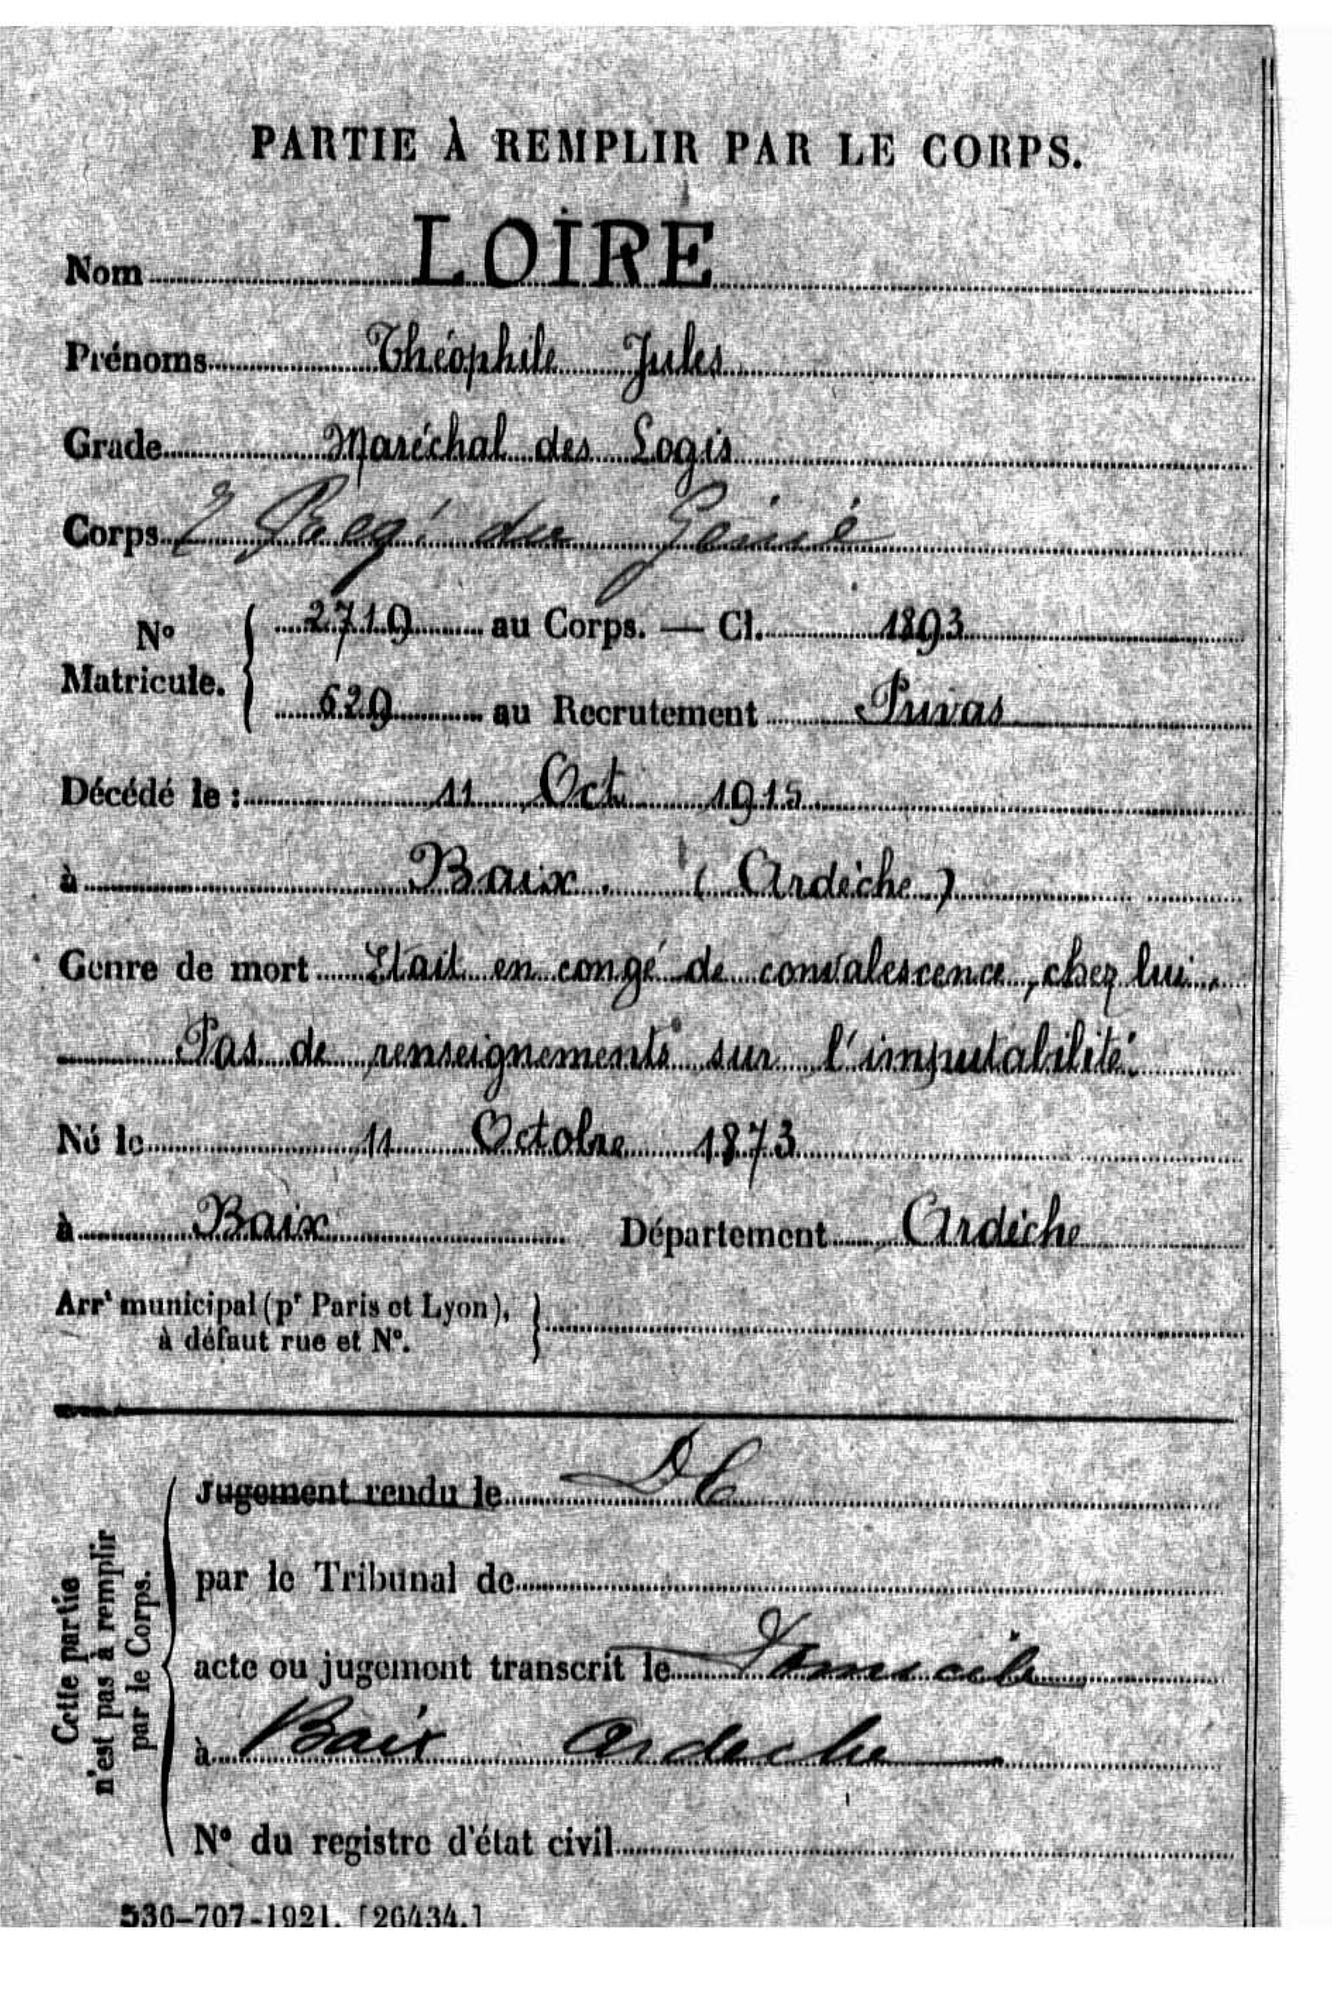 PARTIE À REMPLIR PAR LE CORPS.
Nom LOIRE
Prénoms Théophile Jules
Grade Maréchal des Logis
Corps Rég' du Génie
N° Matricule. 2719 au Corps. — Cl. 1893
629 au Recrutement Privas
Décédé le : 11 Oct 1915
à Baix. (Ardèche)
Genre de mort Etait en congé de convalescence, chez lui.
Pas de renseignements sur l'imputabilité.
Né le 11 Octobre 1873
à Baix Département Ardèche
Arrt municipal (pr Paris et Lyon),
à défaut rue et N°.
Cette partie
n'est pas à remplir
par le Corps.
Jugement rendu le
par le Tribunal de
acte ou jugement transcrit le Domicile
à Baix Ardeche
N° du registre d'état civil
530-707-1921. [26434.]